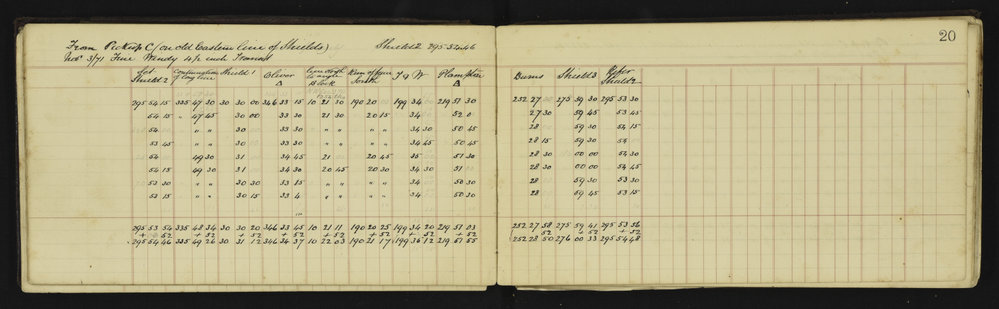 20
From Pickup C (on old Eastern line of Shields) Shield 2 295 54 46
Nov 3/71 Fine Windy 4½ inch Transit
Set Shield 2 Continuation of long line Shield 1 Oliver Δ line North to angle Block J Q W Plumpton Δ Burns Shield 3 Refer Shield 2
295 54 15 335 47 30 30 30 00 346 33 15 10 21 30 190 20 199 34 219 51 30 252 27 00 275 59 30 295 53 30
54 15 " 47 45 30 00 33 30 21 30 20 15 34 52 0 27 30 59 45 53 45
54 " " 30 33 30 " " " " 34 30 50 45 28 59 30 54 15
53 45 " " 30 33 30 " " " " 34 45 50 45 28 15 59 30 54
54 49 30 31 34 45 21 20 45 35 51 30 28 30 00 00 54 30
54 15 49 30 31 34 30 20 45 20 30 34 30 51 28 30 00 00 54 45
53 30 " " 30 30 33 15 " " " " 34 50 30 28 59 30 53 30
53 15 " " 30 15 33 4 " " " " 34 50 30 28 59 45 53 15
295 53 54 335 48 34 30 30 20 346 33 45 10 21 11 190 20 25 199 34 20 219 51 03 252 27 58 275 59 41 295 53 56
+ 52 + 52 + 52 + 52 + 52 + 52 + 52 + 52 52 + 52 + 52
295 54 46 335 49 26 30 31 12 346 34 37 10 22 03 190 21 17 199 35 12 219 51 55 252 28 50 276 00 33 295 54 48